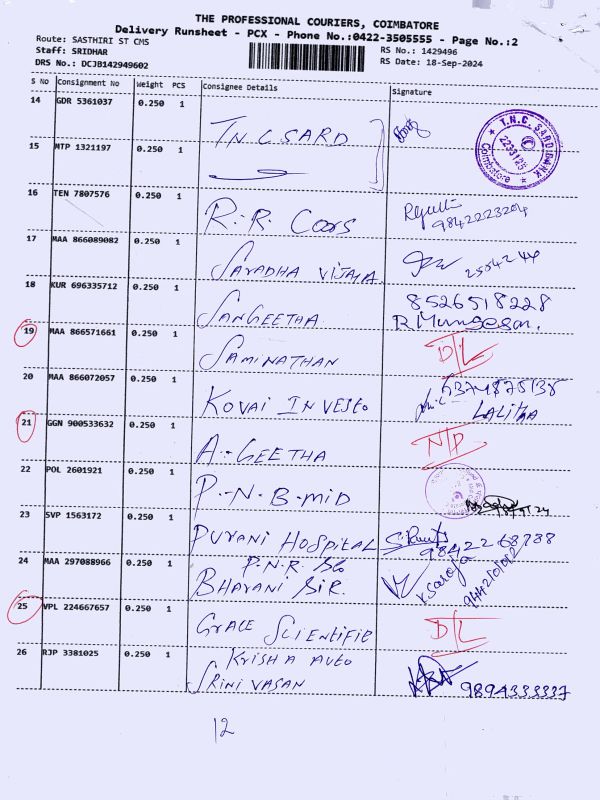 THE PROFESSIONAL COURIERS, COIMBATORE
Delivery Runsheet - PCX - Phone No.:0422-3505555 - Page No.:2
Route: SASTHIRI ST CMS
Staff: SRIDHAR
DRS No.: DCJB142949602
RS No.: 1429496
RS Date: 18-Sep-2024
S No Consignment No Weight PCS Consignee Details Signature
14 GDR 5361037 0.250 1 T.N.C. SARD
T.N.C. SARD BANK
2233125
Coimbatore
15 MTP 1321197 0.250 1
16 TEN 7807576 0.250 1 R.R. Cars 9842223204
17 MAA 866089082 0.250 1 SARADHA VIJAYA 2554244
18 KUR 696335712 0.250 1 SANGEETHA 8526518228
R. Murugesan.
19 MAA 866571661 0.250 1 SAMINATHAN D/L
20 MAA 866072057 0.250 1 KOVAI INVESTO 6374875135
LALITHA
21 GGN 900533632 0.250 1 A. GEETHA N/D
22 POL 2601921 0.250 1 P.N.B. MID
23 SVP 1563172 0.250 1 PURANI HOSPITAL 9842268788
24 MAA 297088966 0.250 1 P.N.R. Slo
BHAVANI SIR. K. Saroja
25 VPL 224667657 0.250 1 GRACE SCIENTIFIC D/L
26 RJP 3381025 0.250 1 KRISHA AUTO
SRINIVASAN 9894333337
12